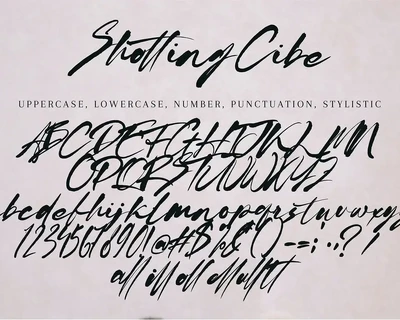 Shotting Cibe
UPPERCASE, LOWERCASE, NUMBER, PUNCTUATION, STYLISTIC
ABCDEFGHIJKLMN
OPQRSTUVWXYZ
bcdefghijklmnopqrstuvwxyz
1234567890!@#$%&()-=;:.,?'